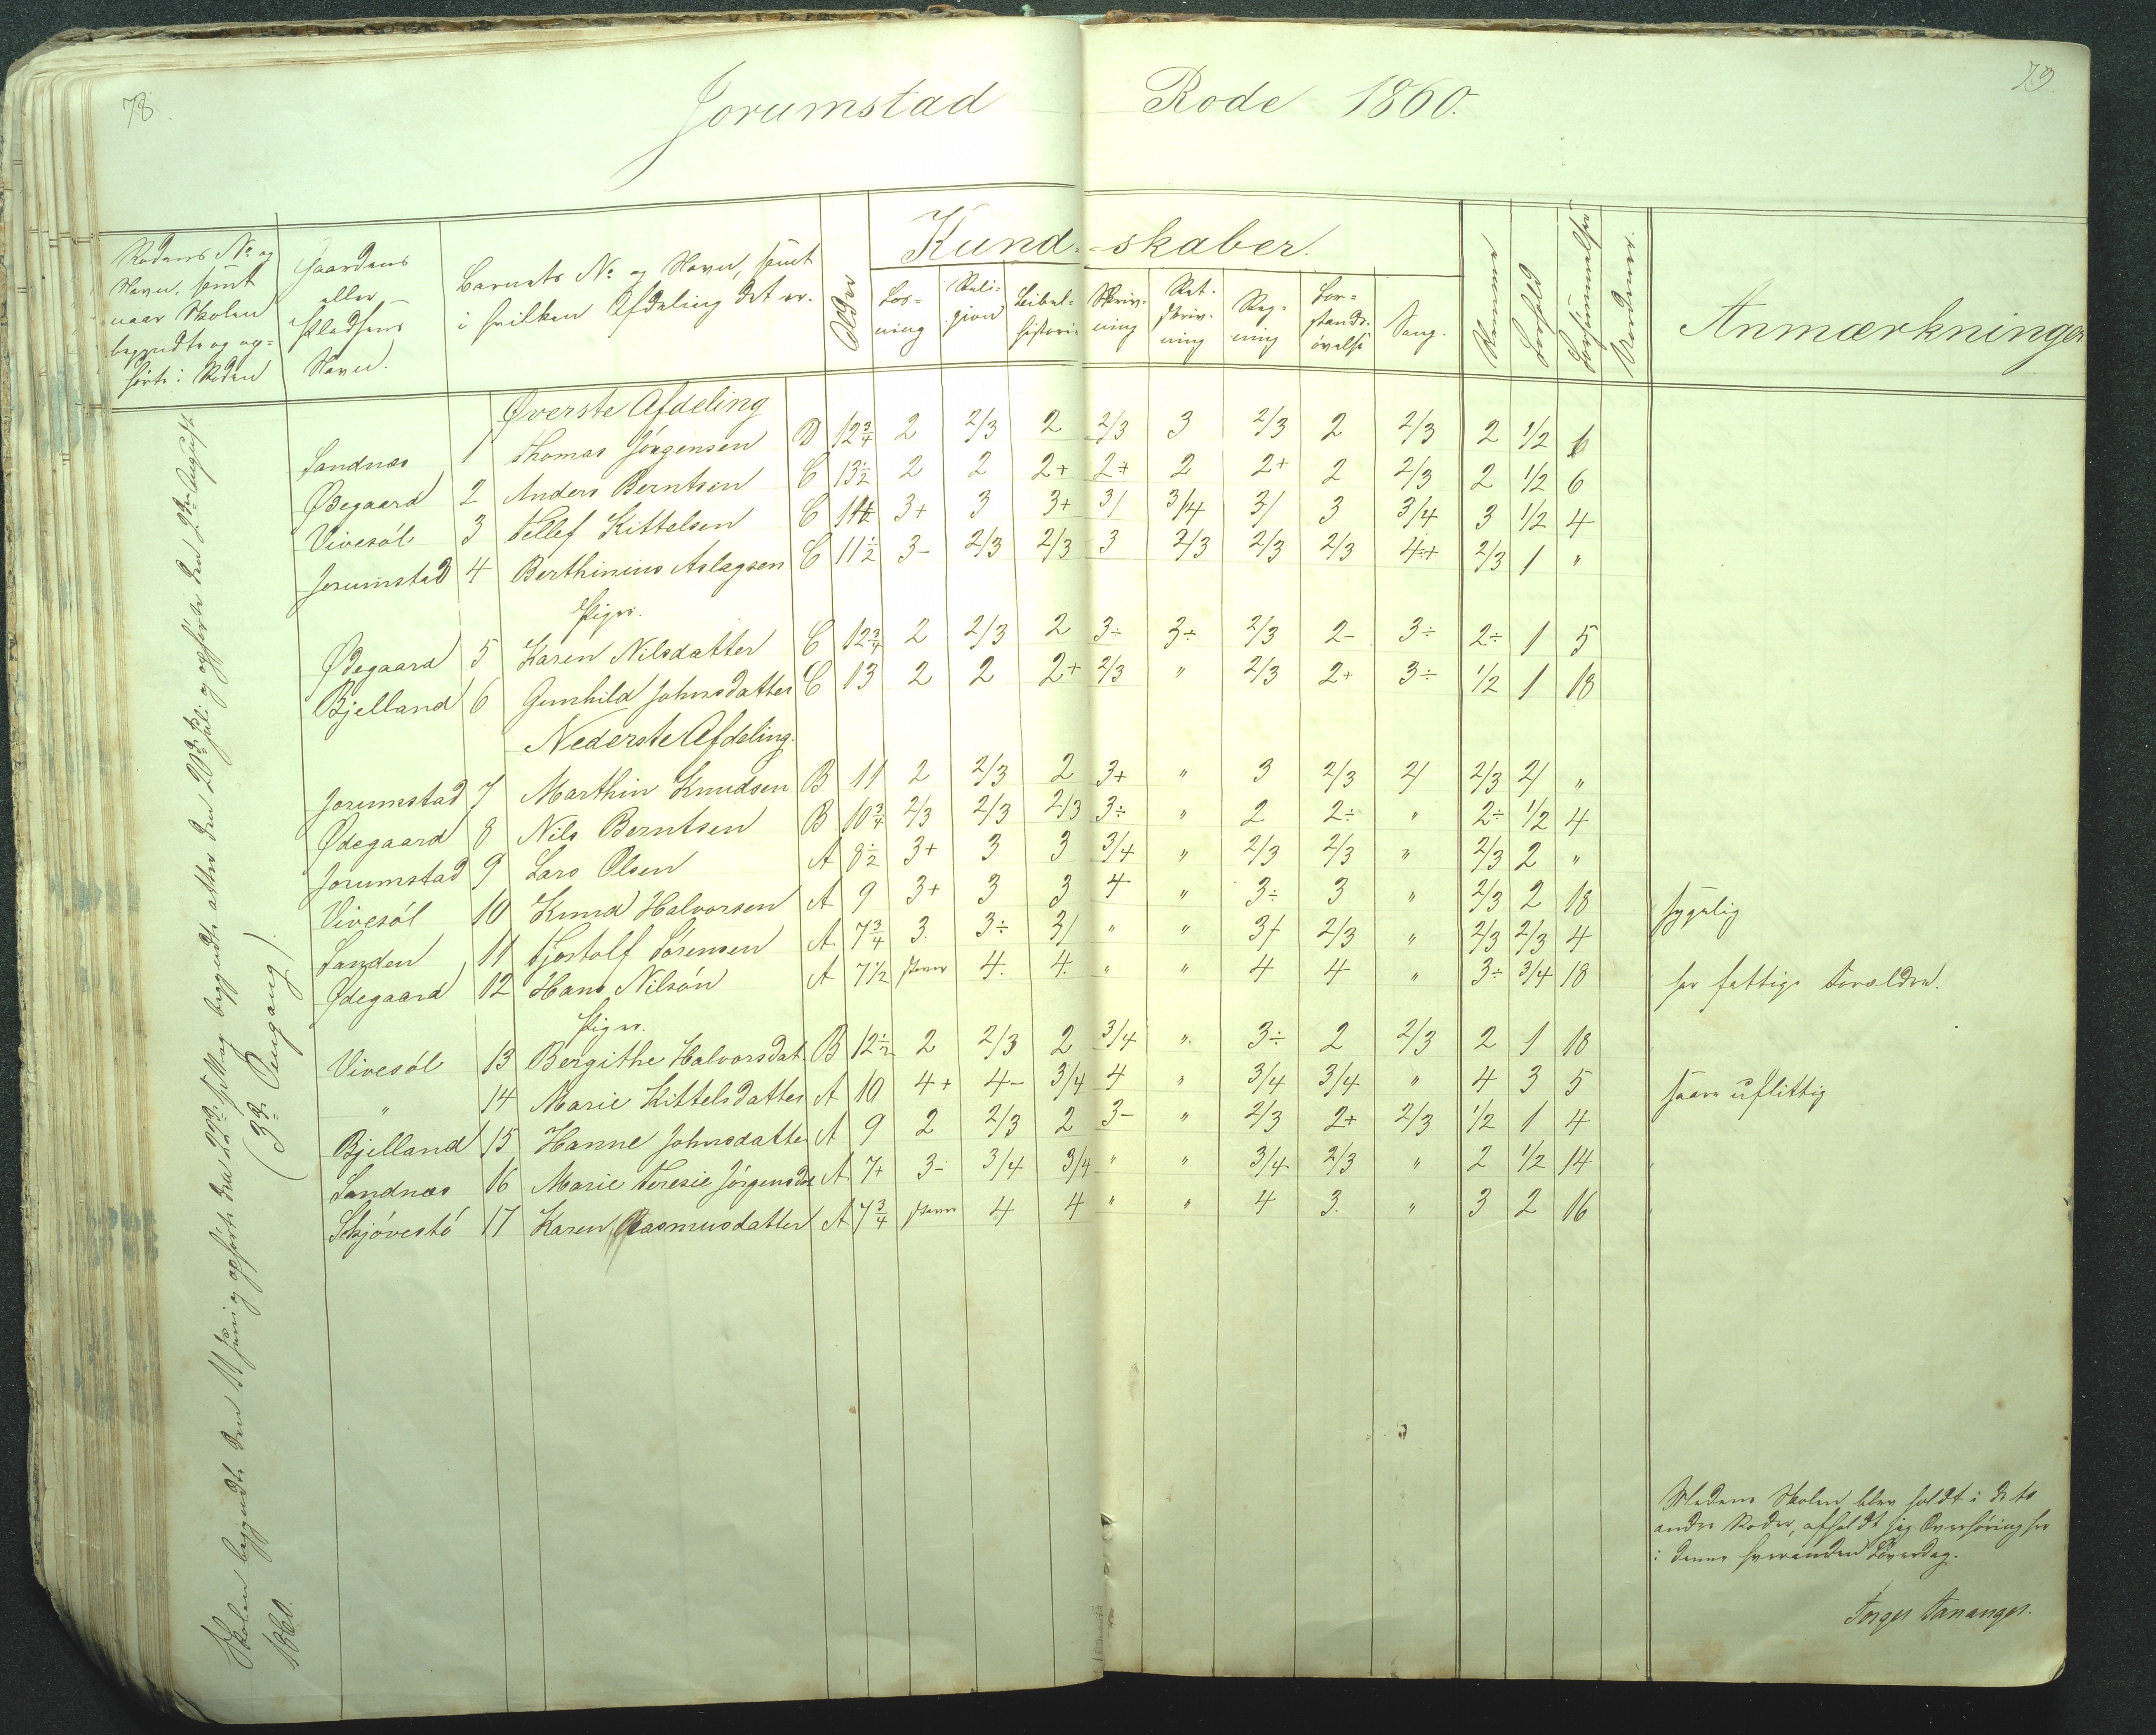 78.
79
Jorumstad Rode 1860.
Rodens No og
Navn, samt
naar Skolen
begyndte og op-
hørte i Roden
Gaardens
eller
Pladsens
Navn.
Barnets No og Navn, samt
i hvilken Afdeling det er.
Alder
Kund-skaber.
Læs-
ning
Reli-
gion
Bibel-
historie
Skriv-
ning
Ret-
skriv-
ning
Reg-
ning
For-
stands-
øvelse
Sang.
Nemme
Forhold
Forsømmelse
Anmærkninger
Øverste Afdeling
Sandnæs 1 Thomas Jörgensen D 12 3/4 2 2/3 2 2/3 3 2/3 2 2/3 2 1/2 6
Ødegaard 2 Anders Berntsen C 13 1/2 2 2 2+ 2+ 2 2+ 2 2/3 2 1/2 6
Vivesöl 3 Tellef Kittelsen C 14 3+ 3 3+ 3/ 3/4 3/ 3 3/4 3 1/2 4
Jorumstad 4 Berthinius Aslagsen C 11 1/2 3- 2/3 2/3 3 2/3 2/3 2/3 4+ 2/3 1 "
Piger.
Ødegaard 5 Karen Nilsdatter C 12 3/4 2 2/3 2 3÷ 3÷ 2/3 2- 3÷ 2÷ 1 5
Bjelland 6 Gunhild Johnsdatter C 13 2 2 2+ 2/3 " 2/3 2+ 3÷ 1/2 1 18
Nederste Afdeling.
Jorumstad 7 Marthin Knudsen B 11 2 2/3 2 3+ " 3 2/3 2/ 2/3 2/ "
Ødegaard 8 Nils Berntsen B 10 3/4 2/3 2/3 2/3 3÷ " 2 2÷ " 2÷ 1/2 4
Jorumstad 9 Lars Olsen A 8 1/2 3+ 3 3 3/4 " 2/3 2/3 " 2/3 2 "
Vivesöl 10 Knud Halvorsen A 9 3+ 3 3 4 " 3÷ 3 " 2/3 2 18 sygelig
Sanden 11 Gjostolf Sörensen A 7 3/4 3. 3÷ 3/ " " 3/ 2/3 " 2/3 2/3 4
Ødegaard 12 Hans Nilsön A 7 1/2 staver 4. 4. " " 4 4 " 3÷ 3/4 18 har fattige Forældre.
Piger.
Vivesöl 13 Bergithe Halvorsdat B 12 1/2 2 2/3 2 3/4 " 3÷ 2 2/3 2 1 18
" 14 Marie Kittelsdatter A 10 4+ 4- 3/4 4 " 3/4 3/4 " 4 3 5 saare uflittig
Bjelland 15 Hanne Johnsdatter A 9 2 2/3 2 3- " 2/3 2+ 2/3 1/2 1 4
Sandnæs 16 Marie Teresie Jörgensdr A 7+ 3- 3/4 3/4 " " 3/4 2/3 " 2 1/2 14
Skjövestö 17 Karen Rasmusdatter A 7 3/4 staver 4 4 " " 4 3. " 3 2 16
Skolen begyndte den 11 Juni og ophørte den 22de begyndte atter den 20de Juli og ophørte den 2den August
1860.
(3de Omgang)
Medens Skolen blev holdt i de to
andre Roder, afholdt jeg Overhøring her
i denne hveranden Løverdag.
Torger Tananger.